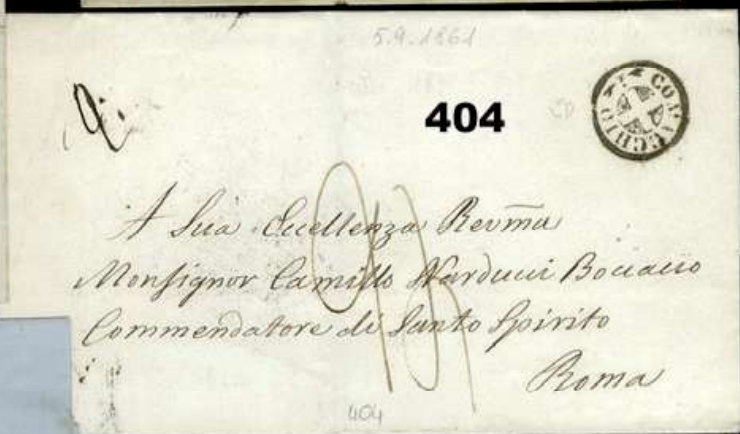 5.9.1861
404
COMACCHIO
A Sua Eccellenza Revm̃a
Monsignor Camillo Narducci Boccaccio
Commendatore di Santo Spirito
Roma
404